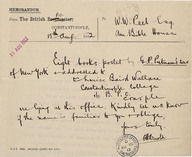 MEMORANDUM.
From The British Postmaster,
CONSTANTINOPLE,
To
W.W. Peet Esq.
Am Bible House
13th Aug
Eight books posted by G.P. Putnam's Sons
of New York & addressed to
Miss Louise Baird Wallace
Constantinople College
are lying in this office. Kindly let me know if
the name is familiar to you or college.
Yours truly